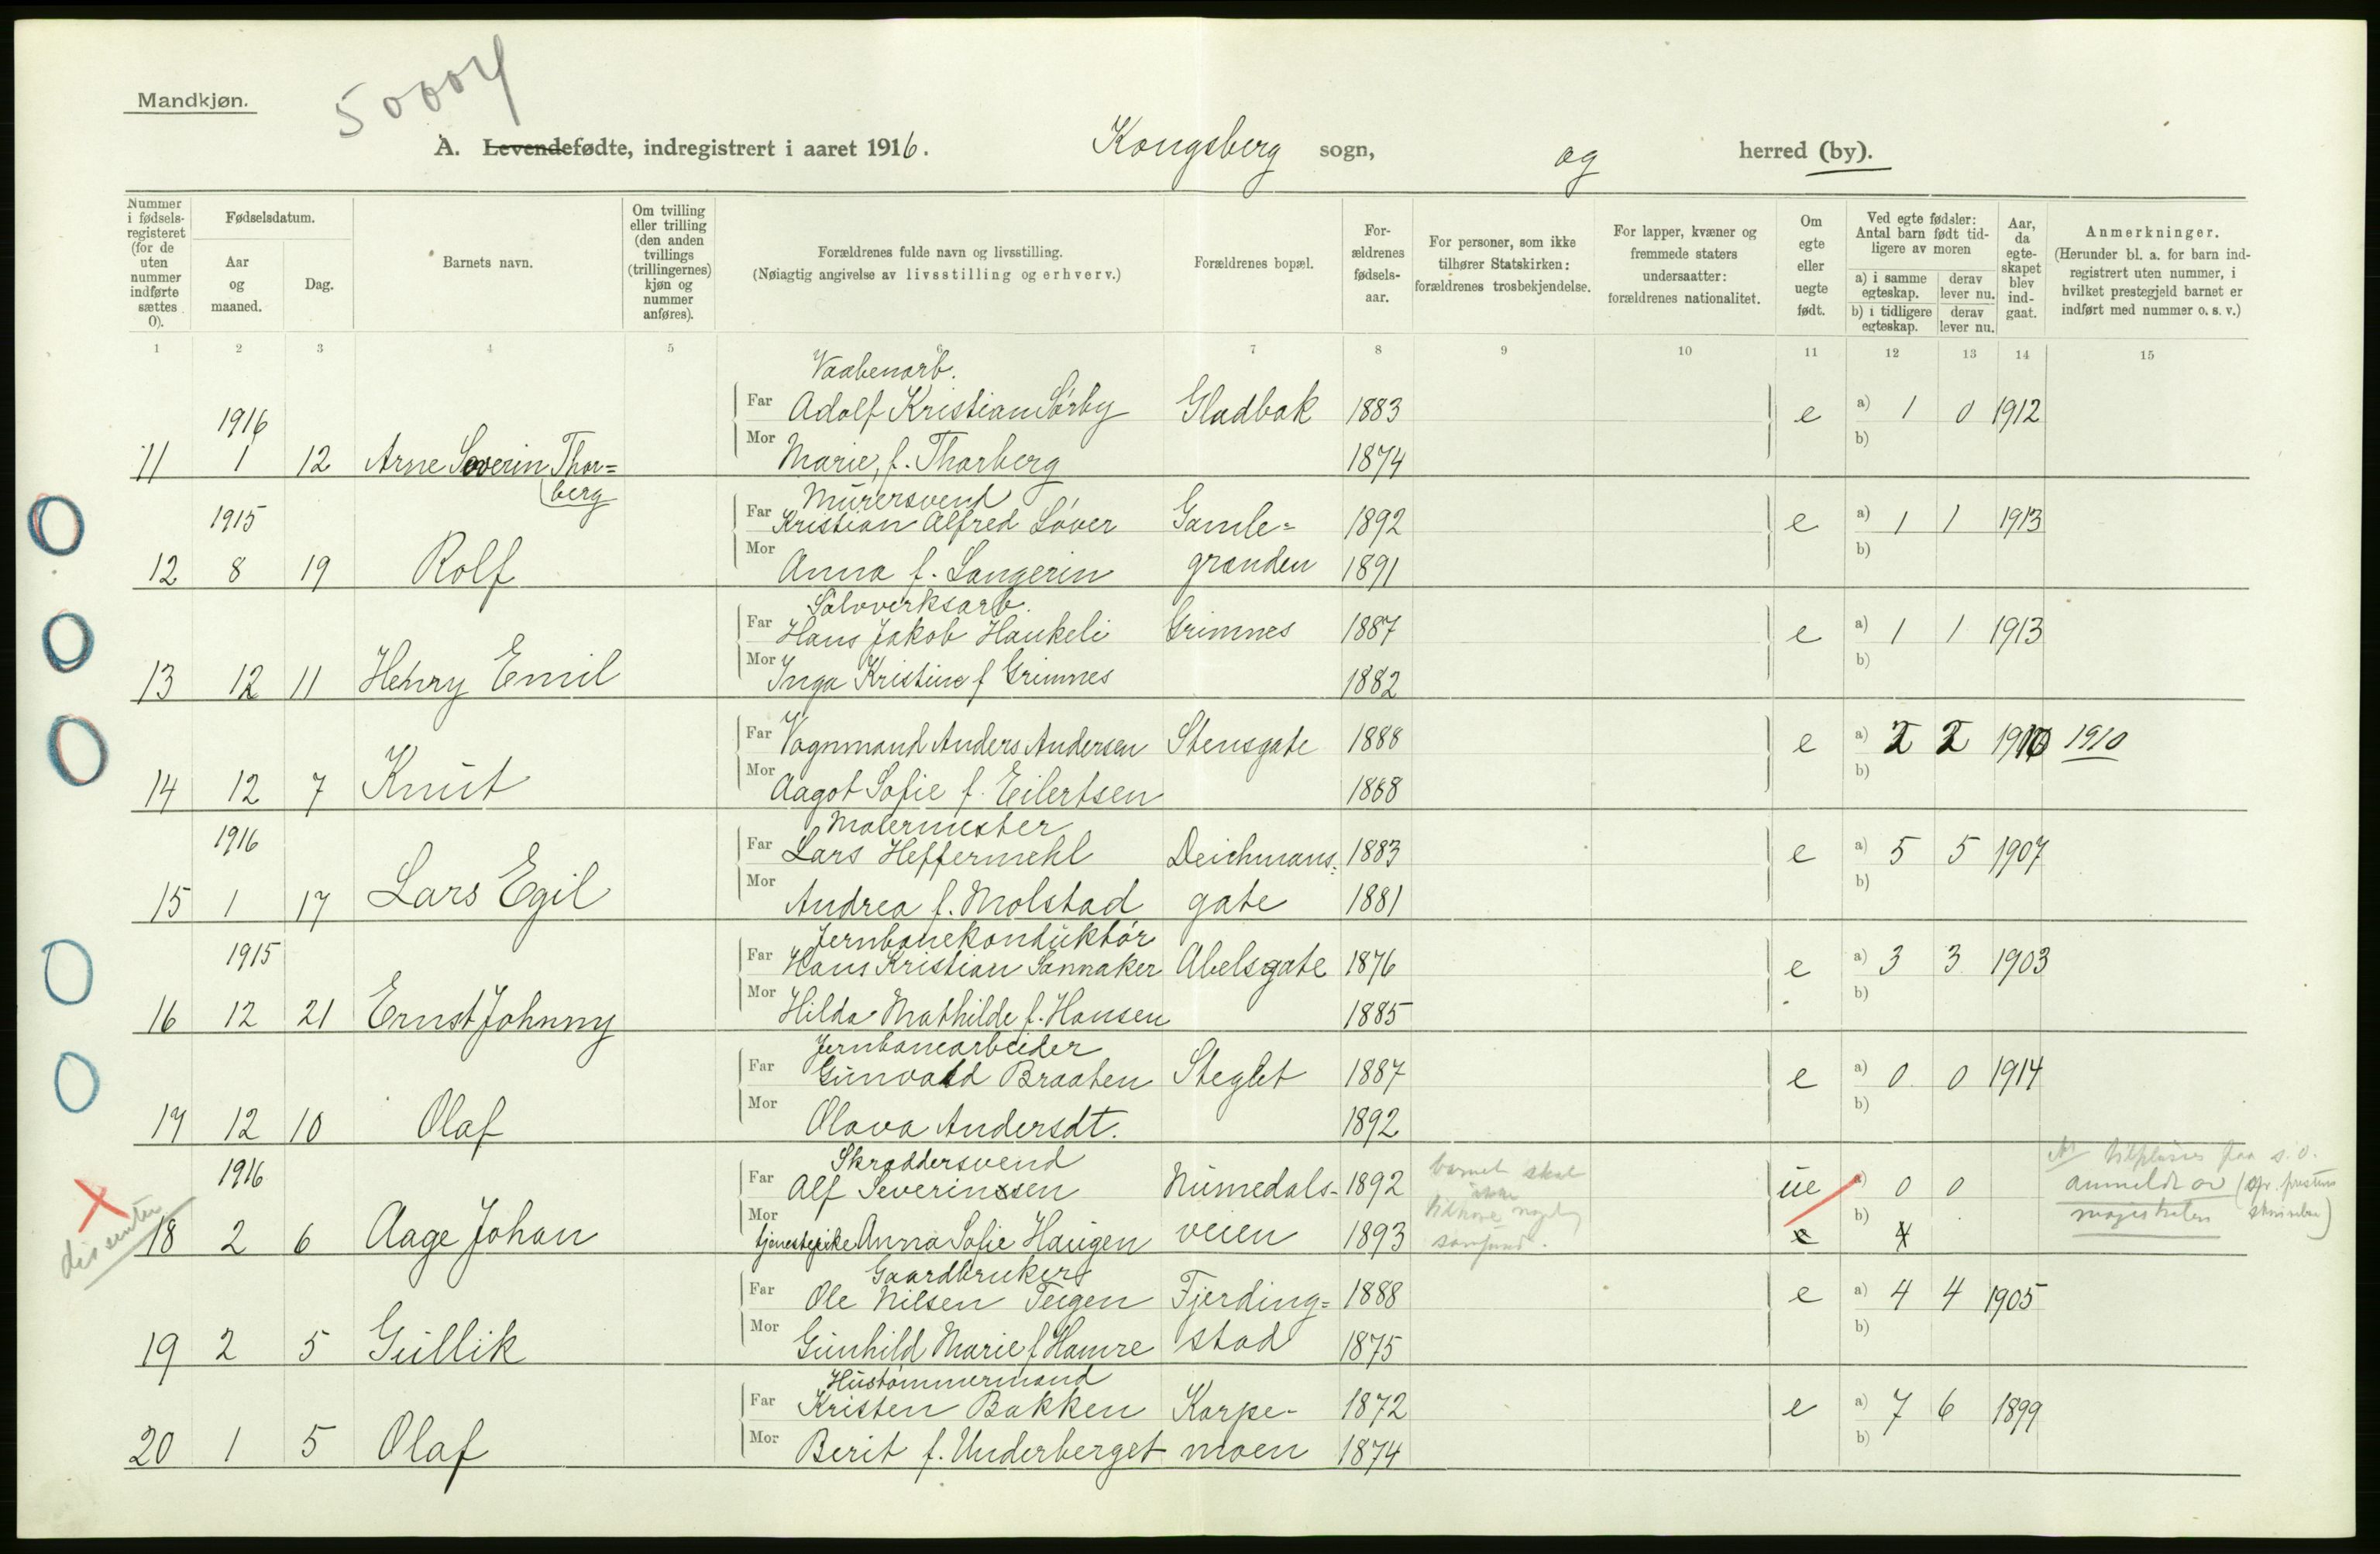 Mandkjøn.
5000 4
A. Levendefødte, indregistrert i aaret 1916. Kongsberg sogn, og herred (by).
Nummer i fødsels-registeret (for de uten nummer indførte sættes 0).
Fødselsdatum.
Aar og maaned.
Dag.
Barnets navn.
Om tvilling eller trilling (den anden tvillings (trillingernes) kjøn og nummer anføres).
Forældrenes fulde navn og livsstilling.
(Nøiagtig angivelse av livsstilling og erhverv.)
Forældrenes bopæl.
For-ældrenes fødsels-aar.
For personer, som ikke tilhører Statskirken: forældrenes trosbekjendelse.
For lapper, kvæner og fremmede staters undersaatter: forældrenes nationalitet.
Om egte eller uegte født.
Ved egte fødsler: Antal barn født tid-ligere av moren
a) i samme egteskap. derav lever nu.
b) i tidligere egteskap. derav lever nu.
Aar, da egte-skapet blev ind-gaat.
Anmerkninger.
(Herunder bl. a. for barn ind-registrert uten nummer, i hvilket prestegjeld barnet er indført med nummer o. s. v.)
1 2 3 4 5 6 7 8 9 10 11 12 13 14 15
Vaabenarb.
1916 Far Adolf Kristian Sørby Gladbak 1883 e a) 1 0 1912
11 1 12 Arne Severin Thor= Mor Marie, f. Thorberg 1874 b)
berg
Murersvend
1915 Far Kristian Alfred Løver Gamle= 1892 e a) 1 1 1913
12 8 19 Rolf Mor Anna f. Langerin grænden 1891 b)
Sølvverksarb.
Far Hans Jakob Haukeli Grimnes 1887 e a) 1 1 1913
13 12 11 Henry Emil Mor Inga Kristine f Grimnes 1882 b)
Far Vognmand Anders Andersen Stensgate 1888 e a) 2 2 1910 1910
14 12 7 Knut Mor Aagot Sofie f. Eilertsen 1868 b)
Malermester
1916 Far Lars Heffermehl Deichmans= 1883 e a) 5 5 1907
15 1 17 Lars Egil Mor Andrea f. Molstad gate 1881 b)
Jernbanekonduktør
1915 Far Hans Kristian Sannaker Abelsgate 1876 e a) 3 3 1903
16 12 21 Ernst Johnny Mor Hilda Mathilde f. Hansen 1885 b)
Jernbanearbeider
Far Gunvald Braaten Steglet 1887 e a) 0 0 1914
17 12 10 Olaf Mor Olava Andersdt. 1892 b)
Skræddersvend
1916 Far Alf Severinsen Numedals- 1892 barnet skal ikke tilhøre nogen samfund. ue a) 0 0 anmeldt av magistraten
dissenter 18 2 6 Aage Johan Mor tjenestepike Anna Sofie Haugen veien 1893 e b) 4
Gaardbruker
Far Ole Nilsen Teigen Fjerding= 1888 e a) 4 4 1905
19 2 5 Gullik Mor Gunhild Marie f Hamre stad 1875 b)
Hustømmermand
Far Kristen Bakken Karpe- 1872 e a) 7 6 1899
20 1 5 Olaf Mor Berit f. Underberget moen 1874 b)